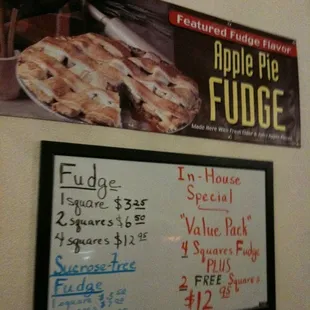 Featured Fudge Flavor
Apple Pie
FUDGE
Fudge
1 square $3.25
2 squares $6.50
4 squares $12.95
Sucrose-free
Fudge
1 square
2 squares
In-House
Special
"Value Pack"
4 Squares Fudge
"PLUS
2 FREE Squares
$12.95